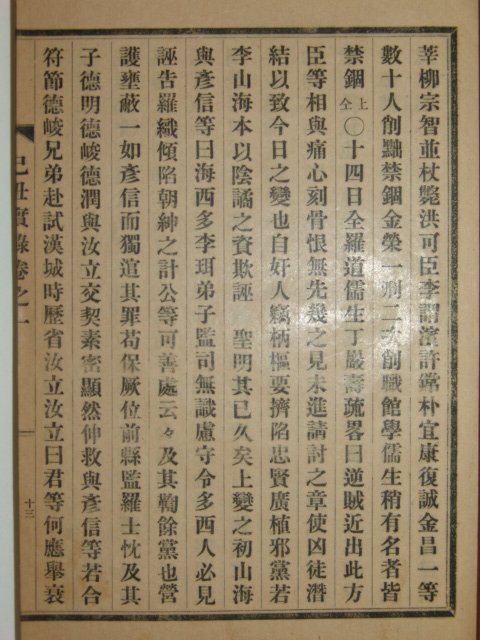 莘柳宗智並杖斃洪可臣李謂濱許鏜朴宜康復誠金昌一等
數十人削黜禁錮金榮一刑二次削職館學儒生稍有名者皆
禁錮上仝〇十四日全羅道儒生丁巖壽疏畧曰逆賊近出此方
臣等相與痛心刻骨恨無先幾之見未進請討之章使凶徒潛
結以致今日之變也自奸人竊柄樞要擠陷忠賢廣植邪黨若
李山海本以陰譎之資欺誣 聖明其已久矣上變之初山海
與彥信等曰海西多李珥弟子監司無識慮守令多西人必見
誣告羅織傾陷朝紳之計公等可善處云々及其鞫餘黨也營
護壅蔽一如彥信而獨逭其罪苟保厥位前縣監羅士忱及其
子德明德峻德潤與汝立交契素密顯然伸救與彥信等若合
符節德峻兄弟赴試漢城時歷省汝立汝立曰君等何應舉衰
己丑實錄卷之一
十三